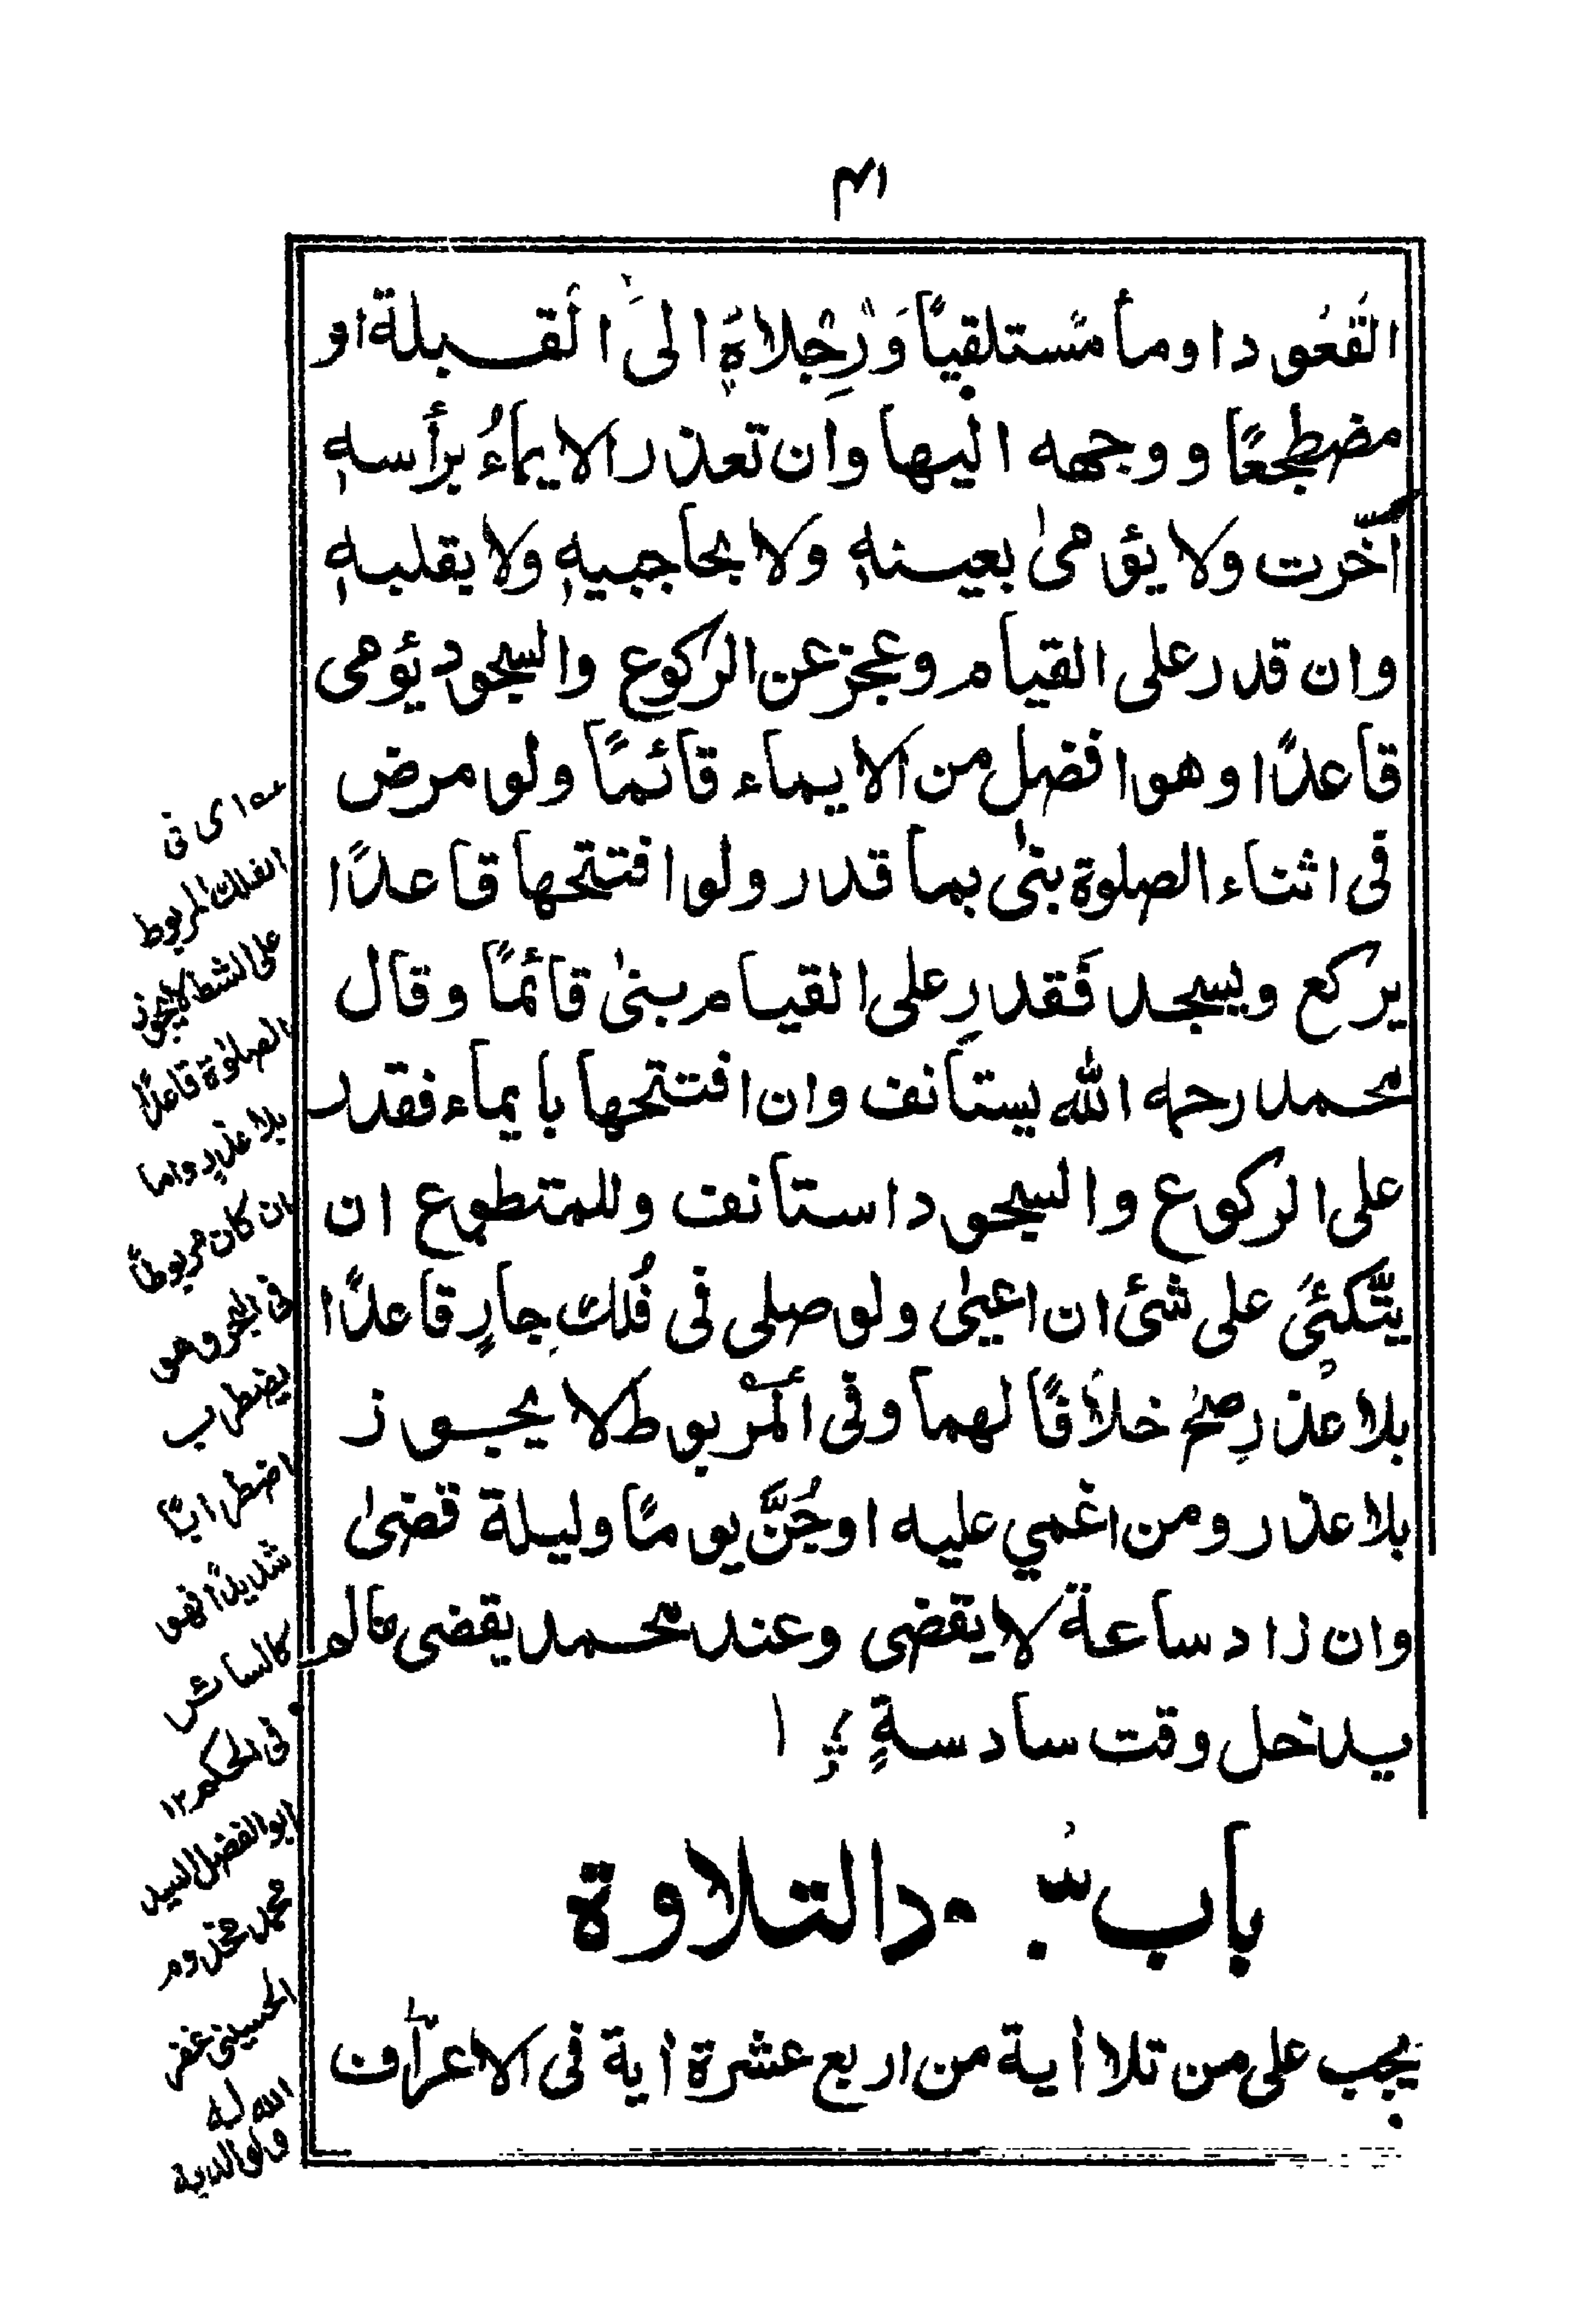 القعود اومأ مستلقيًا وَرِجلاهُ الى القبلة او
مضطجعًا و وجهه اليها وان تعذر الايماءُ برأسهٖ
اُخّرت ولا يؤمىٰ بعينهٖ ولا بحاجبيهٖ ولا بقلبهٖ
وان قدر على القيام وعجز عن الركوع والسجود يؤمى
قاعدًا وهو افضل من الايماء قائمًا ولو مرض
فى اثناء الصلوة بنىٰ بما قدر ولو افتتحها قاعدًا
يركع ويسجد فَقدر على القيام بنىٰ قائمًا وقال
محمد رحمه الله يستانف وان افتتحها بايماء فقدر
على الركوع والسجود استانف وللمتطوع ان
يتّكئَ على شئ ان اعيىٰ ولو صلى فى فُلك جارٍ قاعدًا
بلا عذرٍ صحَّ خلافًا لهما وفى المربوط لا يجوز
بلا عذر ومن اغمي عليه او جُنَّ يومًا وليلة قضىٰ
وان زاد ساعة لا يقضى وعند محمد يقضى مالم
يدخل وقت سادسةٍ
باب سجود التلاوة
يجب على من تلا أية من اربع عشرة أية فى الاعراف
عه اى فى
الفلك المربوط
على الشط لا يجوز
الصلوٰة قاعدًا
بلا عذرٍ واما
ان كان مربوطًا
فى البحر وهو
يضطرب
اضطرابًا
شديدًا فهو
كالسائر
فى الحكم ١٢
ابو الفضل السيد
محمد مخدوم
الحسينى غفر
الله له
ولوالديه